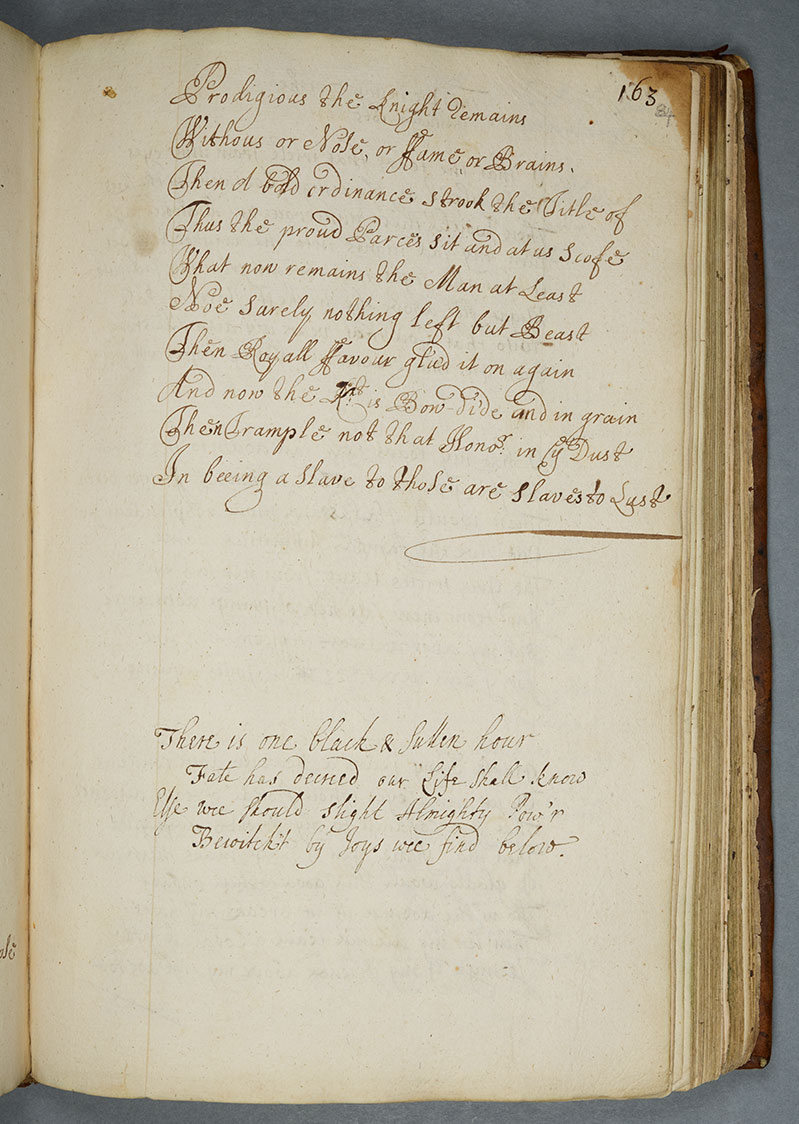 163
84
Prodigious the Knight remains
Withous or Nose, or Fame or Brains.
Then d bold ordinance strook the Title of
Thus the proud Parces sit and at us scofe
What now remains the Man at Least
Noe surely nothing left but Beast
Then Royall Favour glud it on again
And now the Knt is Bow-dide and in grain
Then Trample not that Honor. in ye Dust
In beeing a slave to those are slaves to Lust
There is one black & sullen hour
Fate has decreed our Life shall know
Else wee should slight Almighty Pow'r
Bewitch't by Joys wee find below.